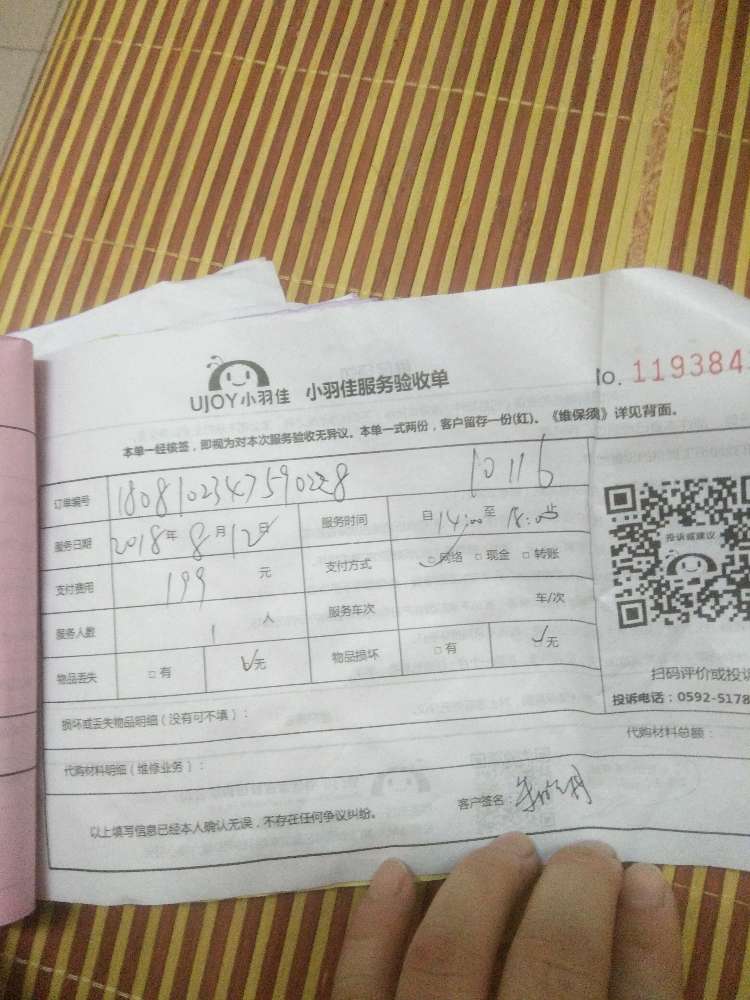 UJOY小羽佳 小羽佳服务验收单 No. 119384
本单一经核签，即视为对本次服务验收无异议。本单一式两份，客户留存一份(红)。《维保须》详见背面。
订单编号 10116
服务日期 2018年8月12日 服务时间 自14:00至18:00止
支付费用 199 元 支付方式 □网络 □现金 □转账
服务人数 1 人 服务车次 车/次
物品丢失 □有 □无 物品损坏 □有 □无
损坏或丢失物品明细（没有可不填）：
代购材料明细（维修业务）：
以上填写信息已经本人确认无误，不存在任何争议纠纷。 客户签名：
投诉或建议
扫码评价或投诉
投诉电话：0592-5178
代购材料总额：